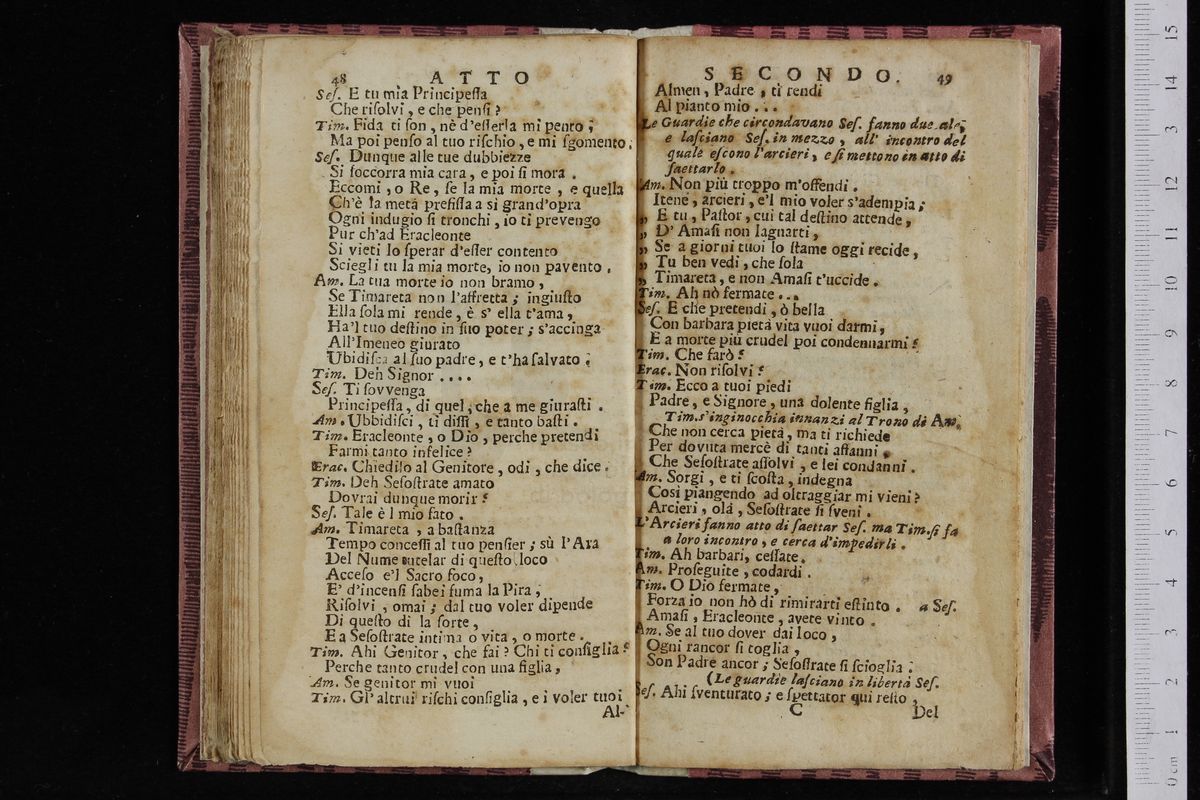 48 ATTO
Seſ. E tu mia Principeſſa
Che riſolvi, e che penſi?
Tim. Fida ti ſon, nè d'eſſerla mi pento;
Ma poi penſo al tuo riſchio, e mi ſgomento.
Seſ. Dunque alle tue dubbiezze
Si ſoccorra mia cara, e poi ſi mora.
Eccomi, o Re, ſe la mia morte, e quella
Ch'è la metá prefiſſa a si grand'opra
Ogni indugio ſi tronchi, io ti prevengo
Pur ch'ad Eracleonte
Si vieti lo ſperar d'eſſer contento
Sciegli tu la mia morte, io non pavento.
Am. La tua morte io non bramo,
Se Timareta non l'affretta; ingiuſto
Ella ſola mi rende, è s' ella t'ama,
Ha'l tuo deſtino in ſuo poter; s'accinga
All'Imeneo giurato
Ubidiſca al ſuo padre, e t'ha ſalvato;
Tim. Deh Signor ....
Seſ. Ti ſovvenga
Principeſſa, di quel, che a me giuraſti.
Am. Ubbidiſci, ti diſſi, e tanto baſti.
Tim. Eracleonte, o Dio, perche pretendi
Farmi tanto infelice?
Erac. Chiedilo al Genitore, odi, che dice.
Tim. Deh Seſoſtrate amato
Dovrai dunque morir?
Seſ. Tale è l mio fato.
Am. Timareta, a baſtanza
Tempo conceſſi al tuo penſier; sù l'Ara
Del Nume tutelar di queſto loco
Acceſo e'l Sacro foco,
E' d'incenſi ſabei fuma la Pira;
Riſolvi, omai; dal tuo voler dipende
Di queſto di la ſorte,
E a Seſoſtrate intima o vita, o morte.
Tim. Ahi Genitor, che fai? Chi ti conſiglia?
Perche tanto crudel con una figlia,
Am. Se genitor mi vuoi
Tim. Gl' altrui riſchi conſiglia, e i voler tuoi
Al-
SECONDO. 49
Almen, Padre, ti rendi
Al pianto mio ...
Le Guardie che circondavano Seſ. fanno due ale,
e laſciano Seſ. in mezzo, all' incontro del
quale eſcono l'arcieri, e ſi mettono in atto di
ſaettarlo.
Am. Non più troppo m'offendi.
Itene, arcieri, e'l mio voler s'adempia;
„ E tu, Paſtor, cui tal deſtino attende,
„ D' Amaſi non lagnarti,
„ Se a giorni tuoi lo ſtame oggi recide,
„ Tu ben vedi, che ſola
„ Timareta, e non Amaſi t'uccide.
Tim. Ah nò fermate ...
Seſ. E che pretendi, ò bella
Con barbara pietá vita vuoi darmi,
E a morte più crudel poi condennarmi?
Tim. Che farò?
Erac. Non riſolvi?
Tim. Ecco a tuoi piedi
Padre, e Signore, una dolente figlia,
Tim. s'inginocchia innanzi al Trono di Am.
Che non cerca pietá, ma ti richiede
Per dovuta mercè di tanti affanni,
Che Seſoſtrate aſſolvi, e lei condanni.
Am. Sorgi, e ti ſcoſta, indegna
Cosi piangendo ad oltraggiar mi vieni?
Arcieri, olá, Seſoſtrate ſi ſveni.
L'Arcieri fanno atto di ſaettar Seſ. ma Tim. ſi fa
a loro incontro, e cerca d'impedirli.
Tim. Ah barbari, ceſſate.
Am. Proſeguite, codardi.
Tim. O Dio fermate,
Forza io non hò di rimirarti eſtinto. a Seſ.
Amaſi, Eracleonte, avete vinto.
Am. Se al tuo dover dai loco,
Ogni rancor ſi toglia,
Son Padre ancor; Seſoſtrate ſi ſcioglia:
(Le guardie laſciano in libertá Seſ.
Seſ. Ahi ſventurato; e ſpettator qui reſto,
C Del
0 cm 1 2 3 4 5 6 7 8 9 10 11 12 13 14 15